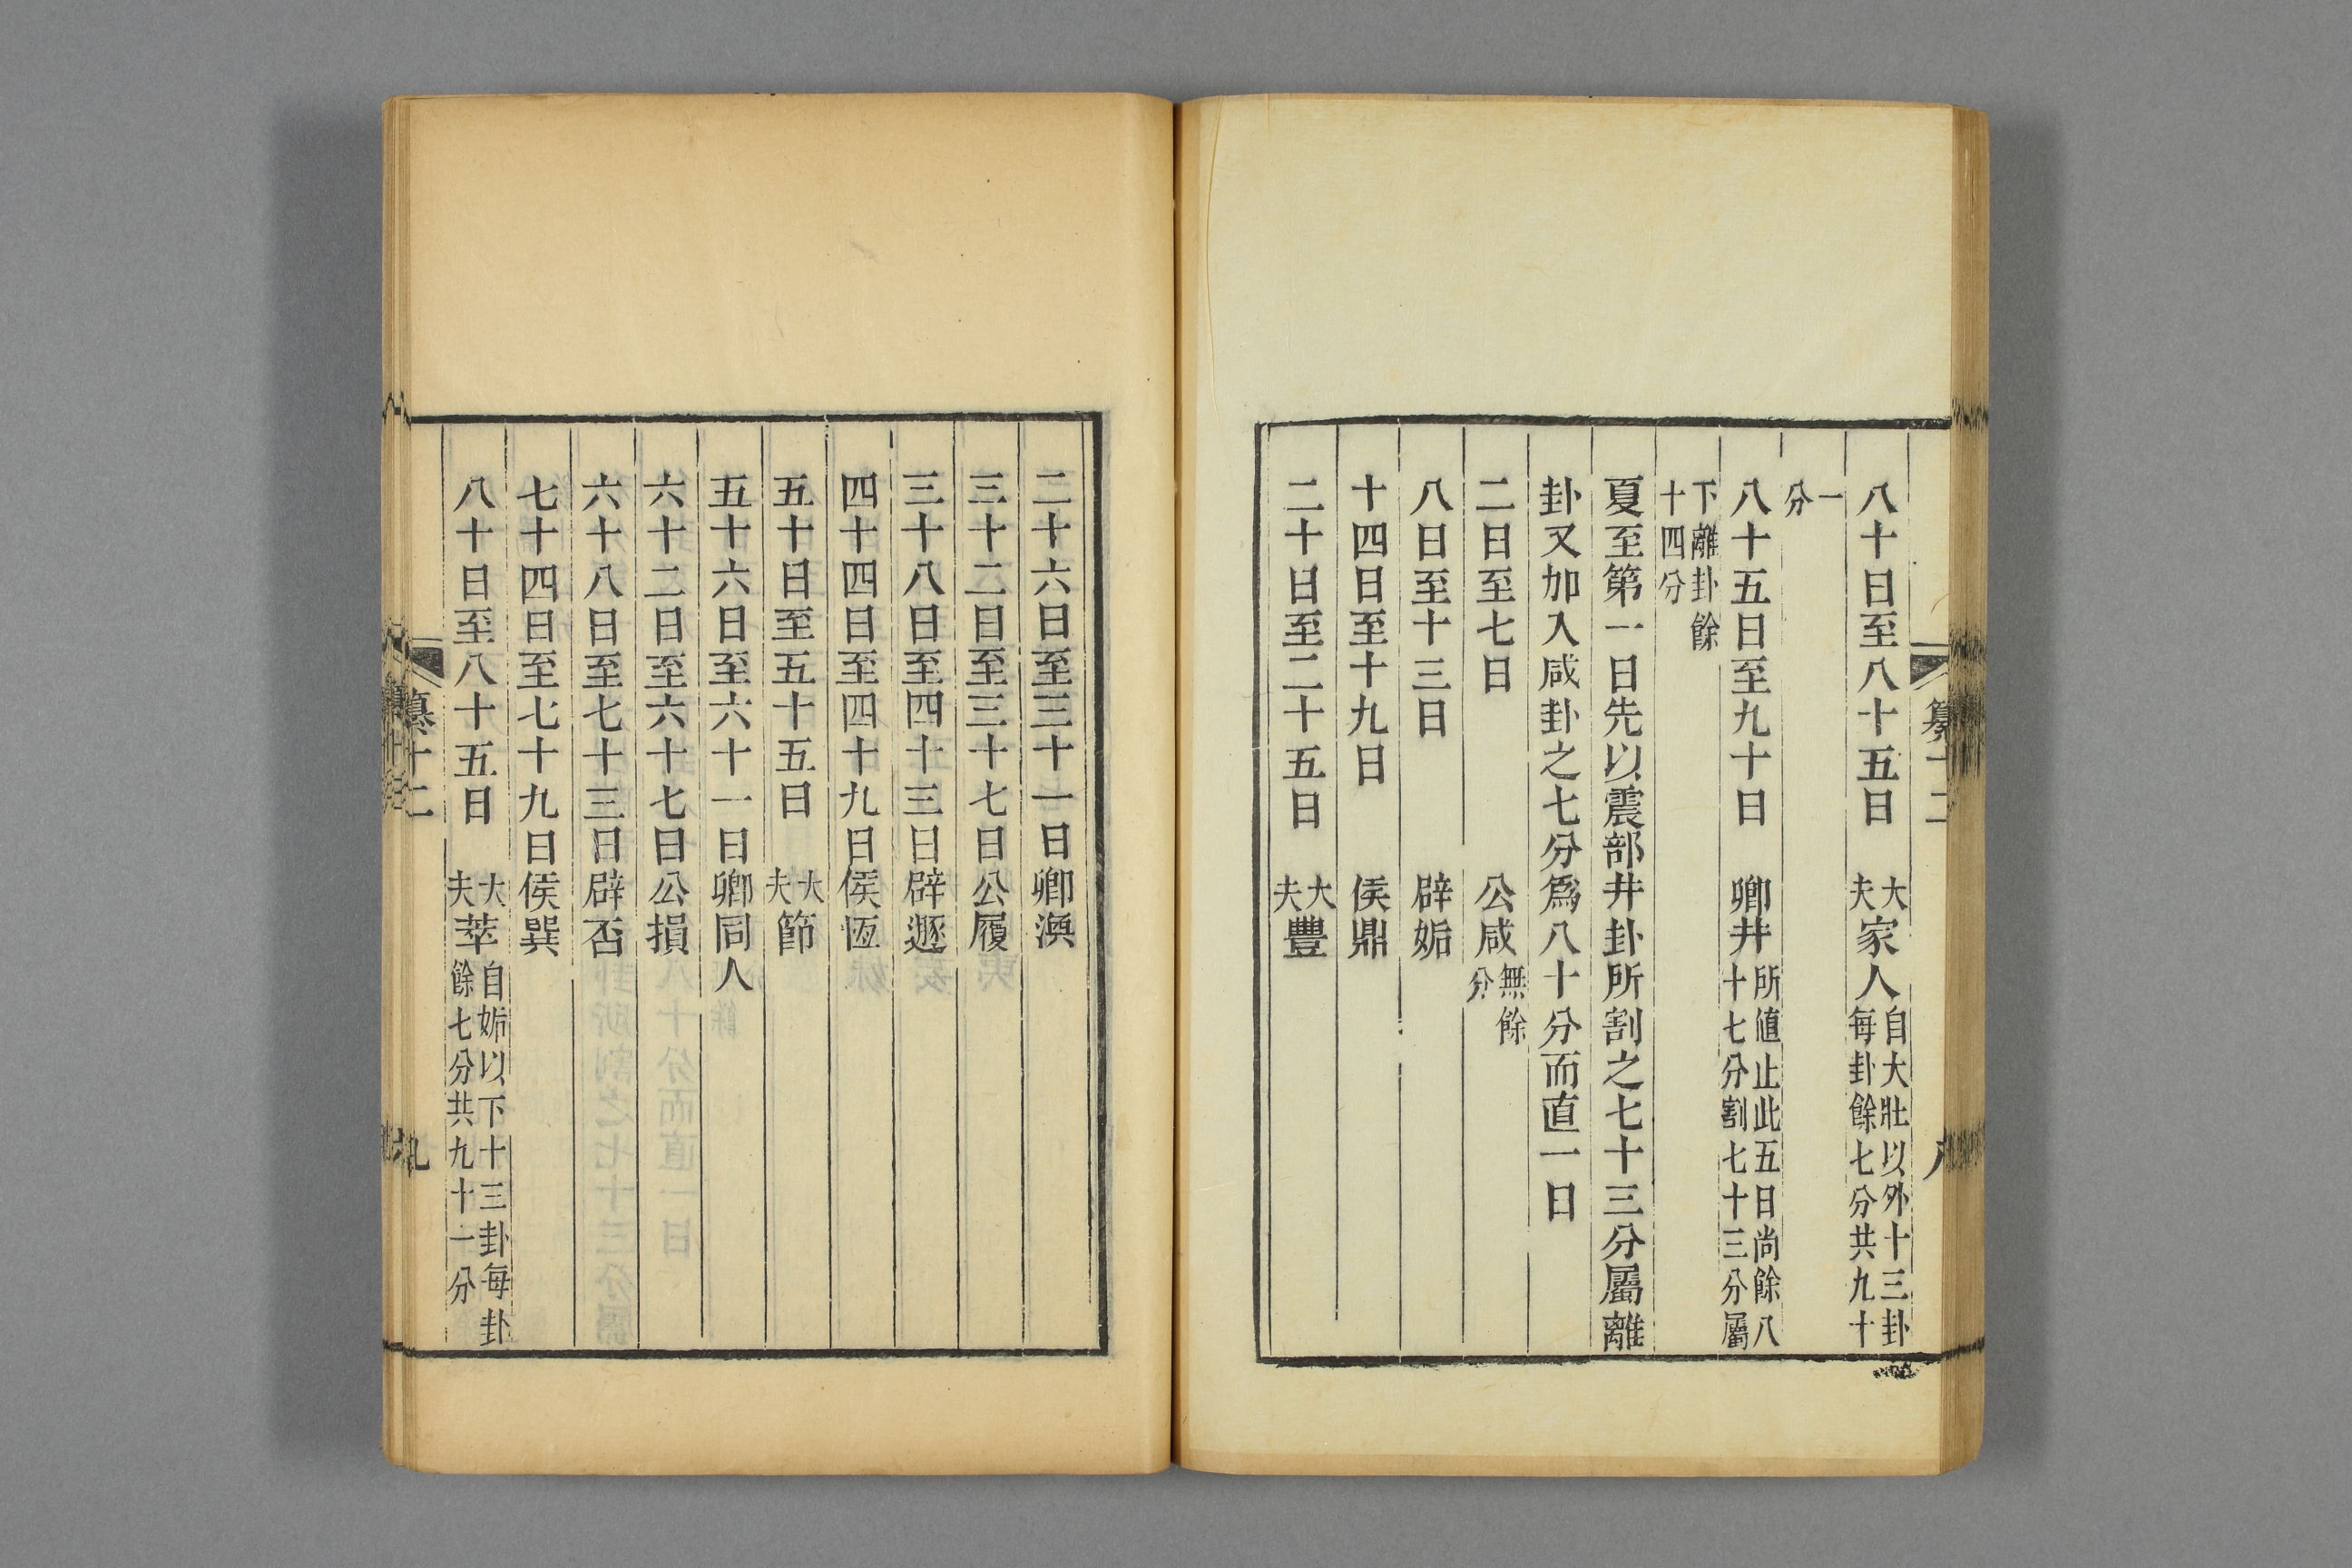 八十日至八十五日　大夫家人自大壯以外十三卦每卦餘七分共九十
一分
八十五日至九十日　卿井所值止此五日尚餘八十七分割七十三分屬
下離卦餘十四分
夏至第一日先以震部井卦所割之七十三分屬離
卦又加入咸卦之七分爲八十分而直一日
二日至七日　公咸無餘分
八日至十三日　辟姤
十四日至十九日　侯鼎
二十日至二十五日　大夫豐
二十六日至三十一日卿渙
三十二日至三十七日公履
三十八日至四十三日辟遯
四十四日至四十九日侯恆
五十日至五十五日　大夫節
五十六日至六十一日卿同人
六十二日至六十七日公損
六十八日至七十三日辟否
七十四日至七十九日侯巽
八十日至八十五日　大夫萃自姤以下十三卦每卦餘七分共九十一分
纂十二
九